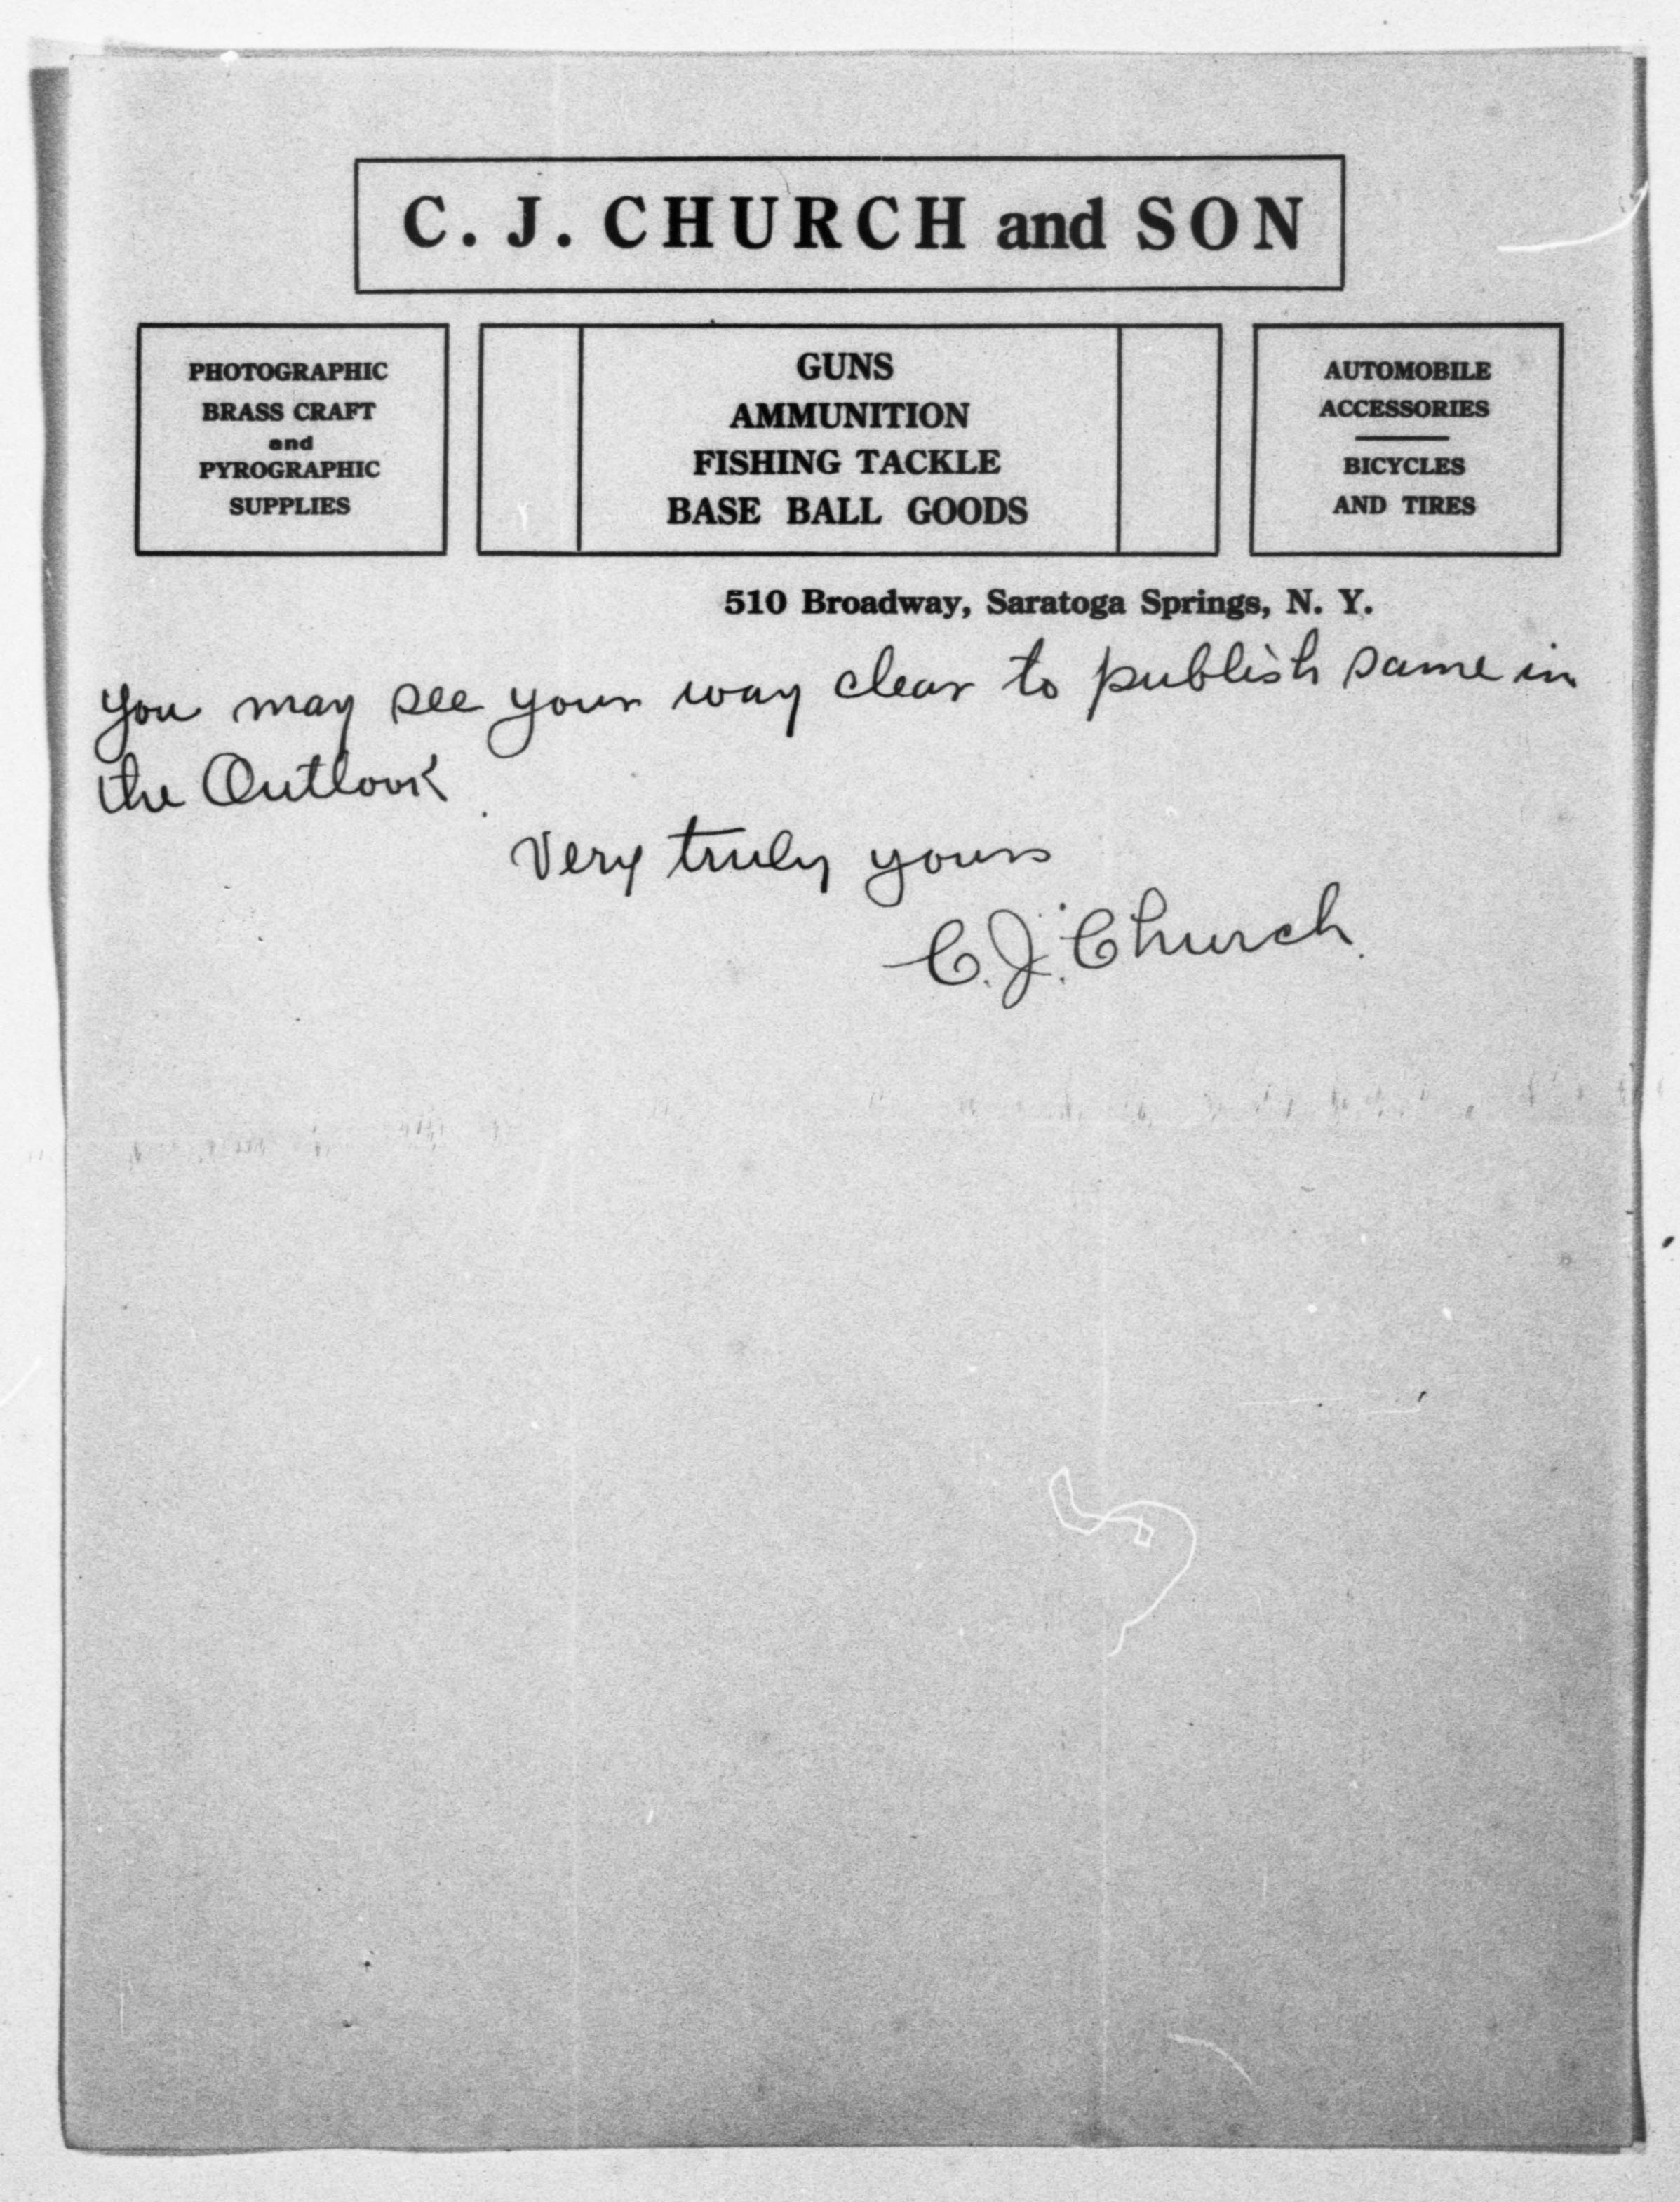 C. J. CHURCH and SON
PHOTOGRAPHIC
BRASS CRAFT
and
PYROGRAPHIC
SUPPLIES
GUNS
AMMUNITION
FISHING TACKLE
BASE BALL GOODS
AUTOMOBILE
ACCESSORIES
BICYCLES
AND TIRES
510 Broadway, Saratoga Springs, N. Y.
you may see your way clear to publish same in
the Outlook.
Very truly yours
C. J. Church.